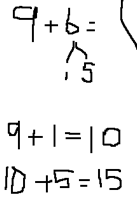 9+6=
1 5
9+1=10
10+5=15